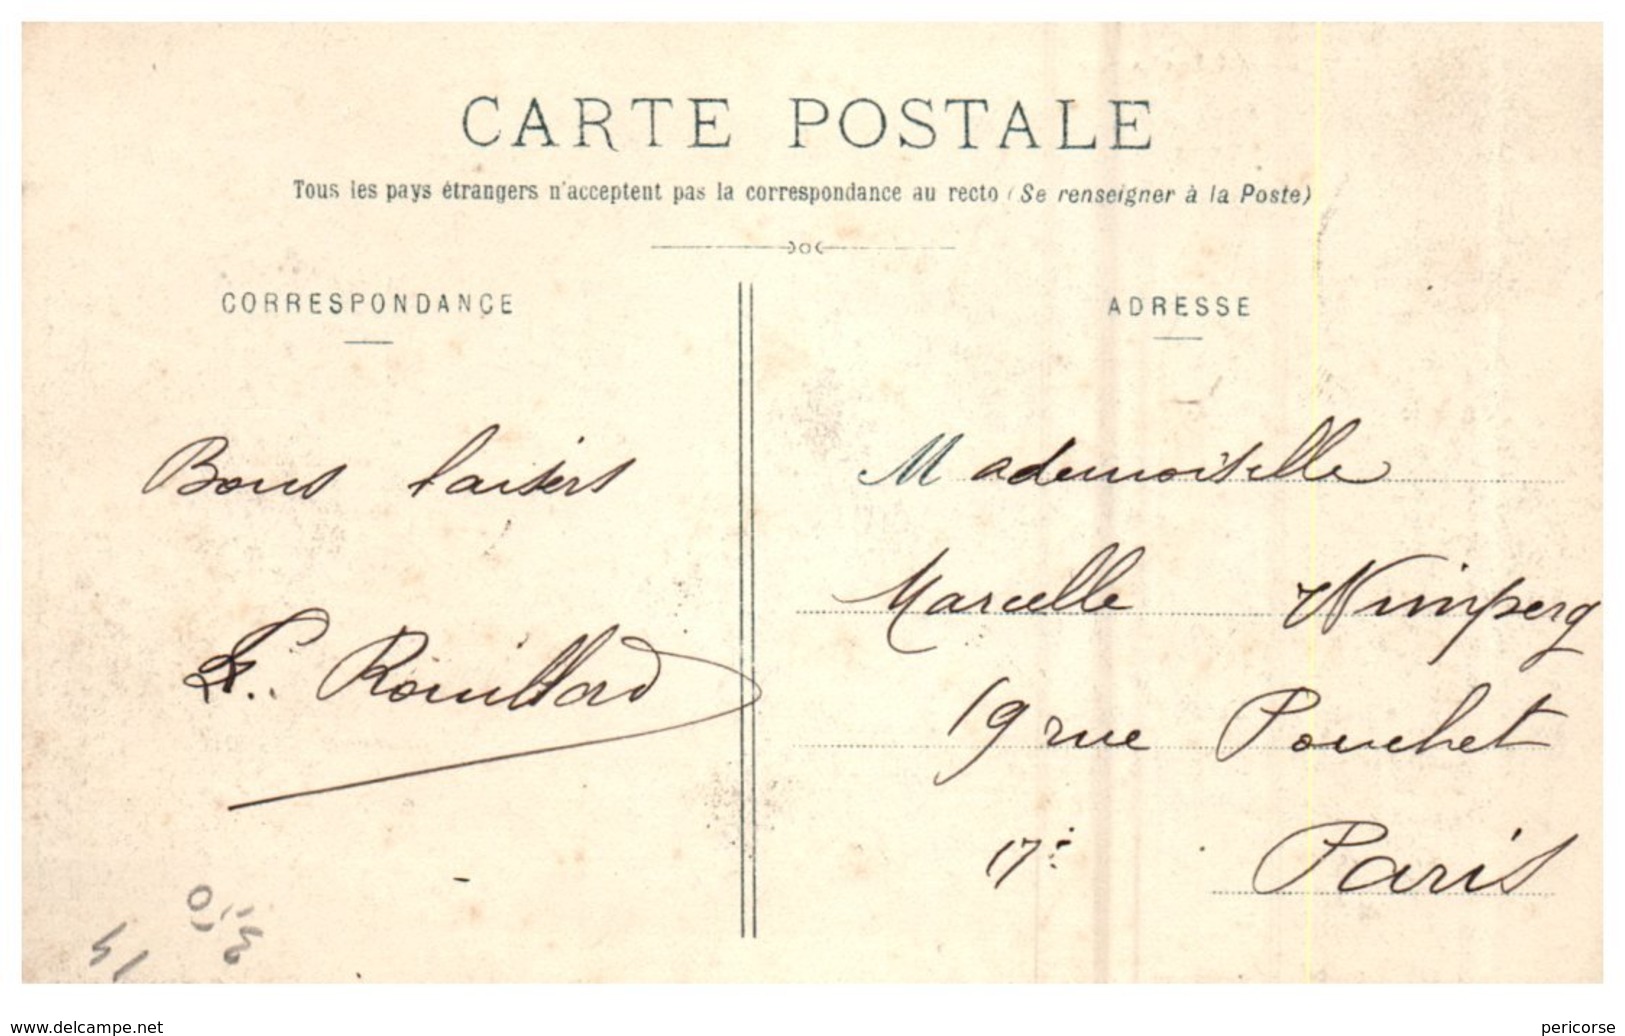 CARTE POSTALE
Tous les pays étrangers n'acceptent pas la correspondance au recto (Se renseigner à la Poste)
CORRESPONDANCE
ADRESSE
Bons baisers
Rouillard
Mademoiselle
Marcelle Wimperg
19 rue Pouchet
17e Paris
www.delcampe.net
pericorse